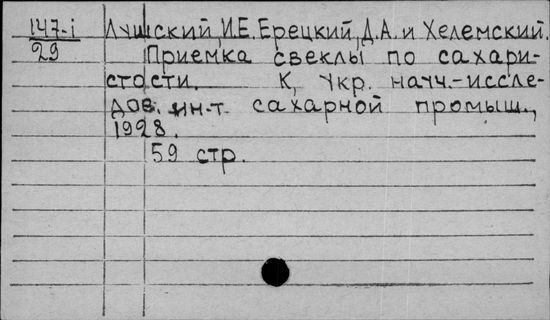 147-i
29
Лушский, И.Е. Ерецкий, Д.А. и Хелемский.
Приемка свеклы по сахари-
стости. К, Укр. науч.-иссле-
дов. ин-т. сахарной промыш.,
1928.
59 стр.